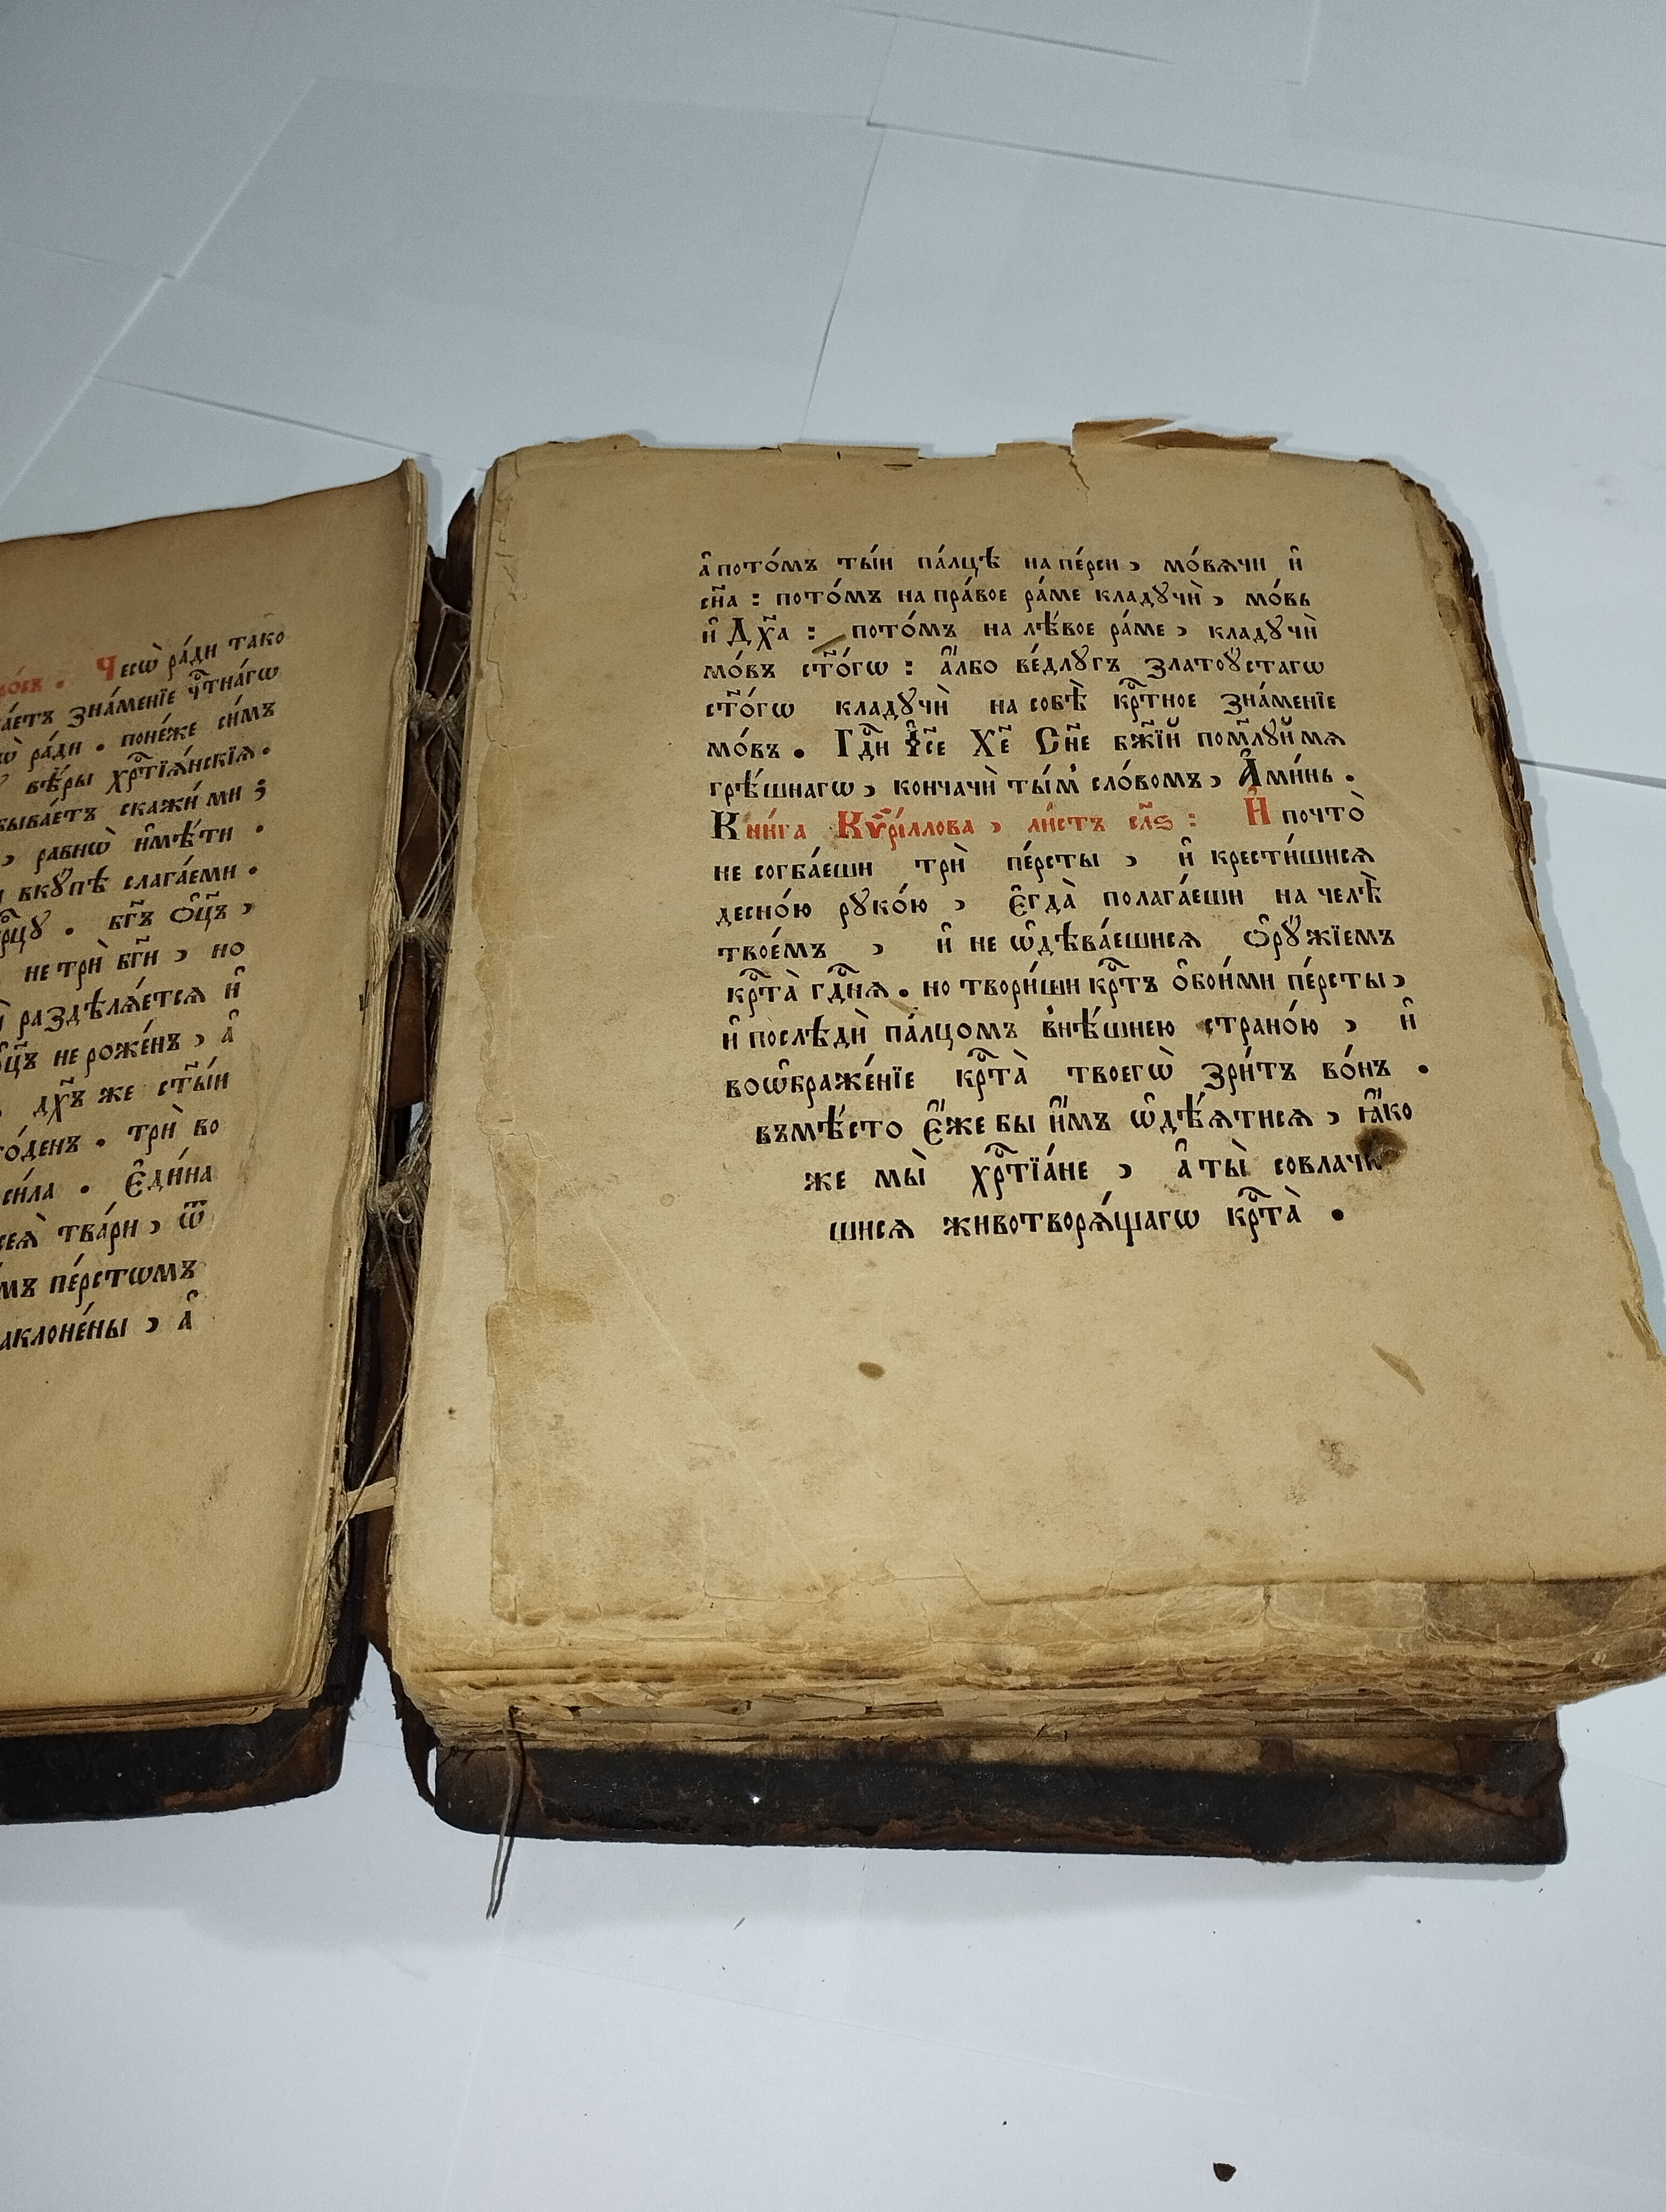 Чесѡ̀ ра́ди тако
зна́менїе чⷭ҇тна́гѡ
ра́ди . поне́же си́мъ
вѣ́ры хрⷭ҇тїѧ́нскїѧ .
скажи́ ми ;
, ра́внѡ и҆мѣ́ти .
вкꙋ́пѣ слага́еми .
бг҃ъ ѻ҆ц҃ъ ,
не трѝ бг҃и , но
раздѣлѧ́етсѧ и҆
не роже́нъ , а҆
дх҃ъ же ст҃ы́й
. трѝ во
си́ла . Е҆ди́на
тва́ри , ѿ
пе́рстѡмъ
, а҆
а҆ пото́мъ ты́и па́лцѣ на пе́рси , мо́вѧчи и҆
сн҃а : пото́мъ на пра́вое ра́ме кладꙋчѝ , мо́вь
и҆ Дх҃а : пото́мъ на лѣ́вое ра́ме , кладꙋчѝ
мо́въ ст҃о́гѡ : а҆́лбо ве́длꙋгъ Златоꙋ́стагѡ
ст҃о́гѡ кладꙋчѝ на собѣ̀ крⷭ҇тное зна́менїе
мо́въ . Гдⷭ҇и І҆с҃е Хе҃ Сн҃е бж҃їй пом҃лꙋй мѧ
грѣ́шнагѡ , кончачѝ ты́м сло́вомъ , А҆ми́нь .
Кни́га Кѷрі́ллова , ли́стъ сл҃ѕ : И҆ почто̀
не согба́еши трѝ пе́рсты , и҆ крести́шисѧ
десно́ю рꙋко́ю , є҆гда̀ полага́еши на челѣ̀
твое́мъ , и҆ не ѡ҆дѣва́ешисѧ ѻ҆рꙋ́жїемъ
крⷭ҇та̀ гдⷭ҇нѧ . но твори́ши крⷭ҇тъ ѻ҆бои́ми пе́рсты ,
и҆ послѣдѝ па́лцомъ внѣ́шнею страно́ю , и҆
воѡ҆браже́нїе крⷭ҇та̀ твоегѡ̀ зри́тъ во́нъ .
въмѣ́сто є҆́же бы и҆́мъ ѡ҆дѣ́ѧтисѧ , ꙗ҆́ко
же мы̀ хрⷭ҇тїа́не , а҆ ты̀ совлачи
шисѧ животворѧ́щагѡ крⷭ҇та̀ .